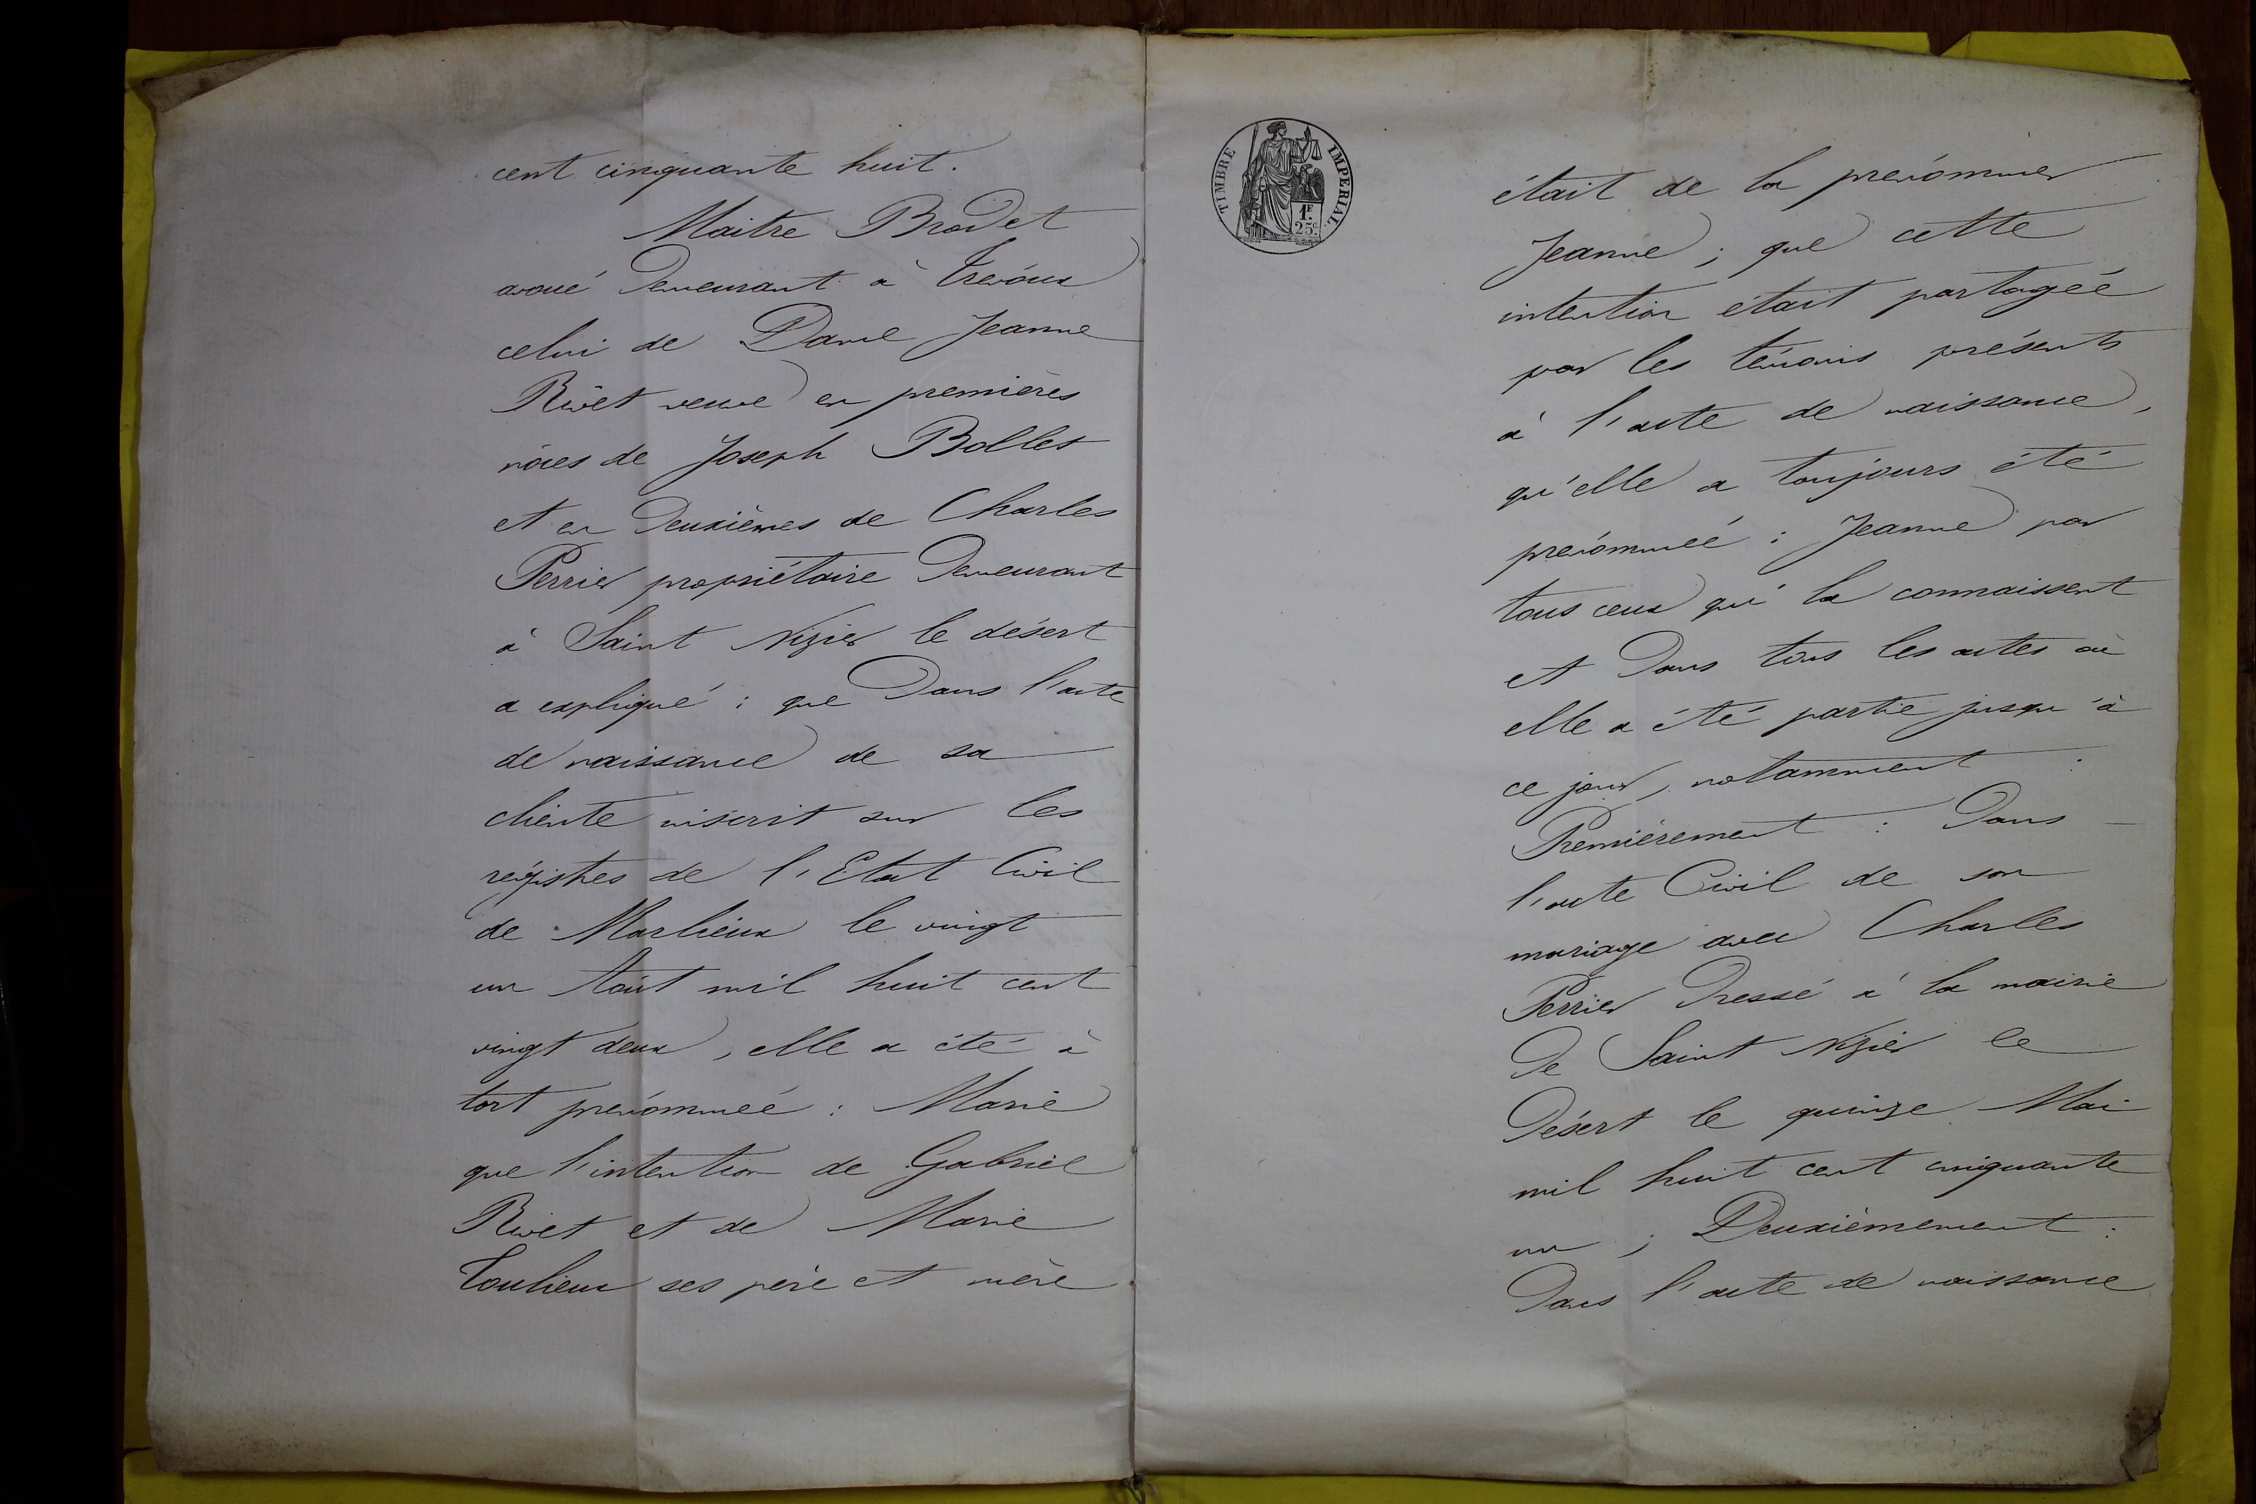 cent cinquante huit.
Maitre Brodet
avoué demeurant à Trevoux
celui de Dame Jeanne
Rivet veuve en premières
noces de Joseph Bollet
et en deuxièmes de Charles
Perrier propriétaire demeurant
à Saint Nizier le désert
a expliqué : que dans l'acte
de naissance de sa
cliente inscrit sur les
régistres de l'Etat Civil
de Marlieux le vingt
un Août mil huit cent
vingt deux, elle a été à
tort prénommée : Marie
que l'intention de Gabriel
Rivet et de Marie
ses père et mère
TIMBRE IMPERIAL
1F. 25c.
était de la prénommer
Jeanne ; que cette
intention était partagée
par les témoins présents
à l'acte de naissance,
qu'elle a toujours été
prénommée : Jeanne par
tous ceux qui la connaissent
et dans tous les actes où
elle a été partie jusqu'à
ce jour, notamment :
Premièrement : Dans
l'acte Civil de son
mariage avec Charles
Perrier dressé à la mairie
de Saint Nizier le
désert le quinze Mai
mil huit cent cinquante
un ; Deuxièmement :
Dans l'acte de naissance